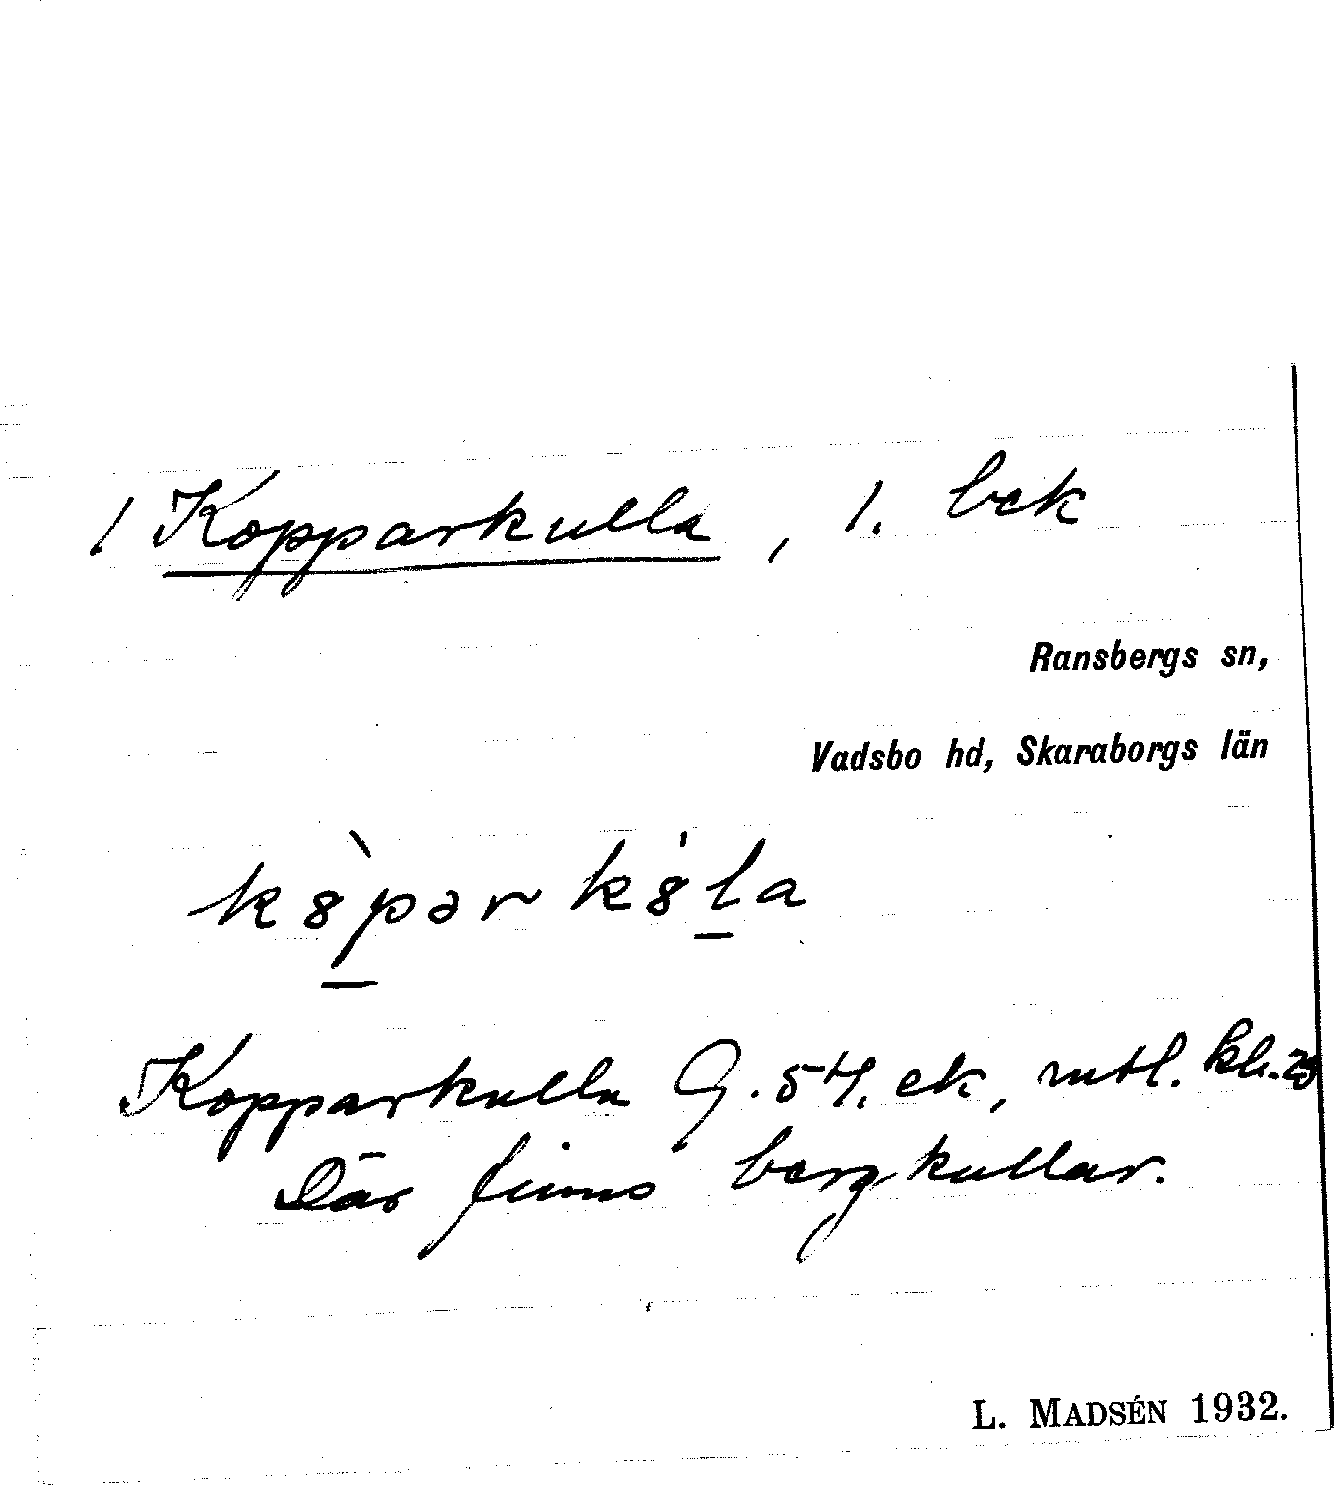 / Kopparkulla, 1. bek
Ransbergs sn,
Vadsbo hd, Skaraborgs län
k8̀pərk8́la
Kopparkulla G. 54, ek,
Där finns bergkullar.
L. MADSÉN 1932.